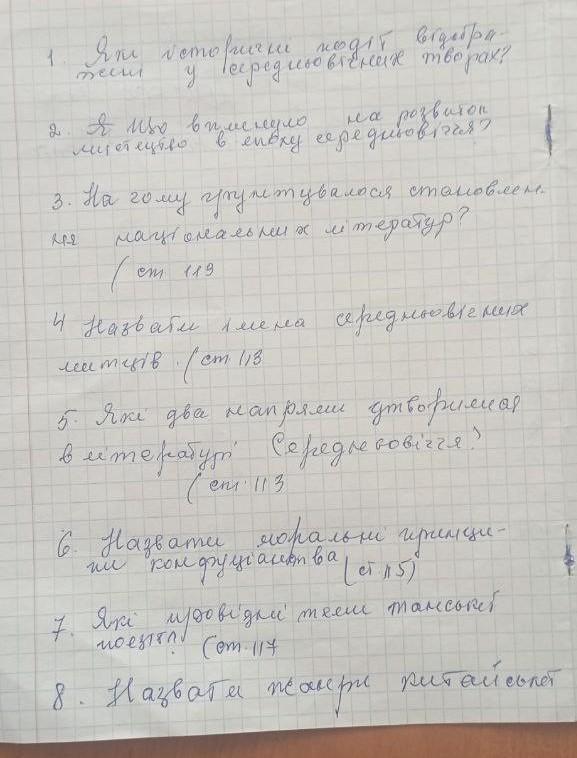 1. Які історичні події відобра-
жені у середньовічних творах?
2. Я Що вплинуло на розвиток
мистецтво в епоху середньовіччя?
3. На чому ґрунтувалося становлен-
ня національних літератур?
(ст 119
4 Назвати імена середньовічних
митців. (ст 113
5. Які два напрями утворилися
в літературі Середньовіччя?
(ст. 113
6. Назвати моральні принци-
пи конфуціанства (ст 115)
7. Які провідні теми танської
поезії? (ст. 117
8. Назвати жанри китайської